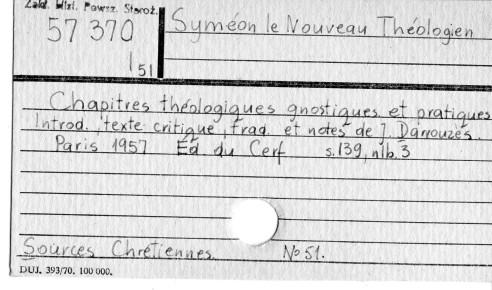 Zakł. Hist. Powsz. Staroż.
57 370
1 51
Syméon le Nouveau Théologien
Chapitres théologiques gnostiques et pratiques
Introd., texte critique, trad. et notes de J. Darrouzès.
Paris 1957 Ed. du Cerf s. 139, nlb. 3
Sources Chrétiennes No 51.
DUJ. 393/70. 100 000.